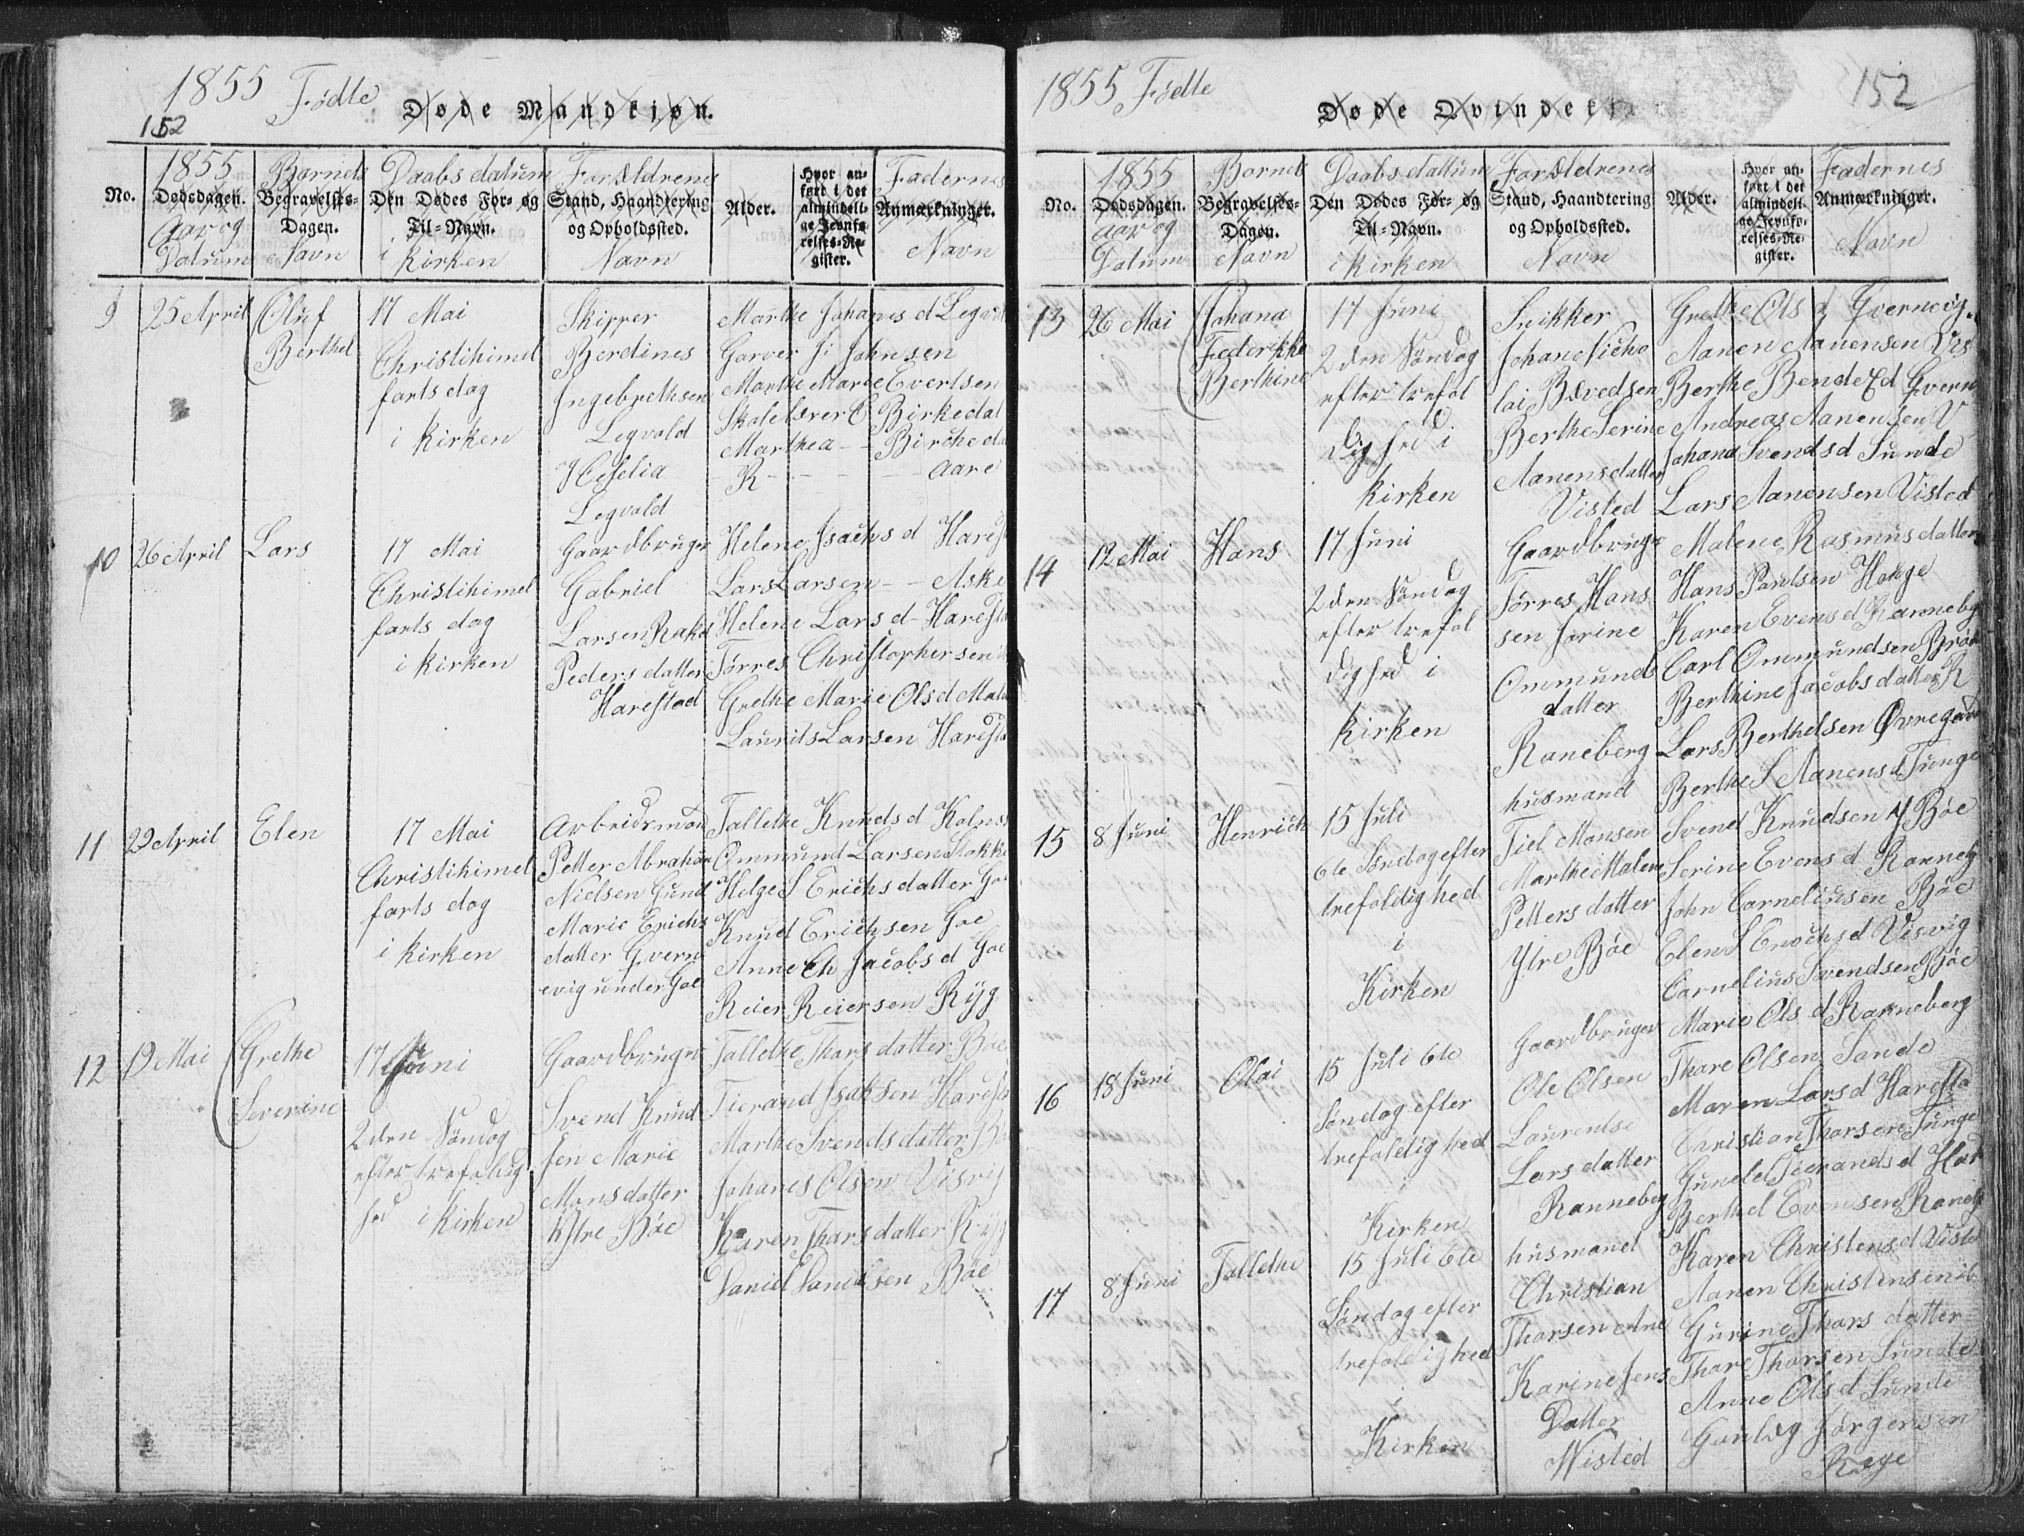 1855 Fødte
Døde Mandkjøn.
152
No.
1855
Dødsdagen.
Aar og
Datum
Barnets
Begravelses-
Dagen.
Navn
Daabs datum
Den Dødes For- og
Til-Navn.
i Kirken
Forældrenes
Stand, Haandtering
og Opholdssted.
Navn
Alder.
Hvor an-
ført i det
almindeli-
ge Jevnfø-
relses-Re-
gister.
Fadernes
Anmærkninger.
Navn
9
25 April
Oluf
Berthel
17 Mai
Christihimel
farts dag
i Kirken
Skipper
Berdines
Ingebrethsen
Legvold
Legvold
Marthe Johanes d
Garver J Johnsen
Marthe Marie Evertsen
E Birkedal
Marthea - - Birche
R - - - Aare
10
26 April
Lars
17 Mai
Christihimel
farts dag
i Kirken
Gaardbruger
Gabriel
Larsen
Peders datter
Harestad
Helene Isachs d
Lars Larsen - - Aske
Helene Lars d
Tørres Christophersen
Grethe Marie Ols d
Laurits Larsen
11
29 April
Elen
17 Mai
Christihimel
farts dag
i Kirken
Arbeidsman
Petter Abraham
Nielsen Gund
Marie Erichs
datter Gvern
evig under Goe
Tallethe Knuds d
Ommund Larsen
Helge S Erichs datter
Knud Erichsen Goe
Anne Jacobs d Goe
Reier Reiersen Ryg
12
19 Mai
Grethe
Severine
17 Juni
2den Søndag
efter trefoldig
hed i Kirken
Gaardbruger
Svend Knud
sen Marie
Mons datter
Ytre Bøe
Tallethe Thors datter Bøe
Tierand Isaksen
Marthe Svends datter
Johanes Olsen Visvig
Karen Thors datter Ryg
Daniel Danielsen Bøe
1855 Fødte
152
Døde
No.
1855
Dødsdagen.
Aar og
Datum
Barnets
Begravelses-
Dagen.
Navn
Daabs dattum
Den Dødes For- og
Til-Navn.
i Kirken
Forældrenes
Stand, Haandtering
og Opholdssted.
Navn
Alder.
Hvor an-
ført i det
almindeli-
ge Jevnfø-
relses-Re-
gister.
Fadernes
Anmærkninger.
Navn
13
26 Mai
Johana
Federikke
Berthine
17 Juni
2den Søndag
efter trefol
dighed i
Kirken
Snikker
Johan Nicho
lai
Berthe Serine
Aanensdatter
Visted
Grethe Ols d Gvernevig
Aanen Aanensen
Berthe
Andreas Aanensen V
Johana Svends d Sunde
Lars Aanensen Visted
14
12 Mai
Hans
17 Juni
2den Søndag
efter trefol
dighed i
Kirken
Gaardbruger
Tørres Hans
sen
Ommunds
datter
Raneberg
Malene Rasmus datter
Hans Paulsen Hauge
Karen Evens d
Carl Ommundsen
Berthine Jacobs datter R
Lars Berthelsen
Berthe S Aanens d Tunge
15
8 Juni
Henrich
15 Juli
6te Søndag efter
trefoldighed
i
Kirken
husmand
Tiel Monsen
Marthe Malene
Petters datter
Ytre Bøe
Svend Knudsen Y Bøe
Serine Evens d
John Corneliusen Bøe
Elen S Enochs d Visvig
Cornelius Svendsen Bøe
16
18 Juni
Olai
15 Juli 6te
Søndag efter
trefoldighed
i
Kirken
Gaardbruger
Ole Olsen
Laurentse
Lars datter
Ranneberg
Marie Ols d Ranneberg
Thore Olsen Sande
Maren Lars d
Christian Thorsen Tunge
Gunild Tierands d
Berthel Evensen
17
8 Juni
Tallethe
15 Juli 6te
Søndag efter
trefoldighed
i
Kirken
husmand
Christian
Thorsen Ane
Karine Jens
Datter
Wisted
Karen Christens d
Aanen Christensen
Gurine Thors datter
Thore Thorsen Sunde
Anne Ols d Sunde
Jørgensen
Røge